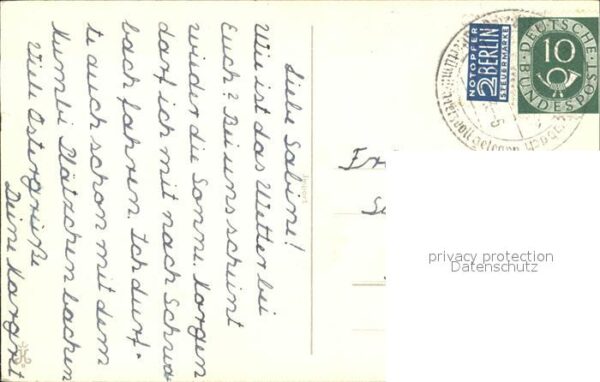 Liebe Sabine!
Wie ist das Wetter bei
Euch? Bei uns scheint
wieder die Sonne. Morgen
darf ich mit nach Schwa
bach fahren. Ich durf-
te auch schon mit dem
Kumbi Plätzchen backen
Viele Ostergrüße
Deine Margret
NOTOPFER
2 BERLIN
STEUERMARKE
DEUTSCHE
10
BUNDESPOST
privacy protection
Datenschutz